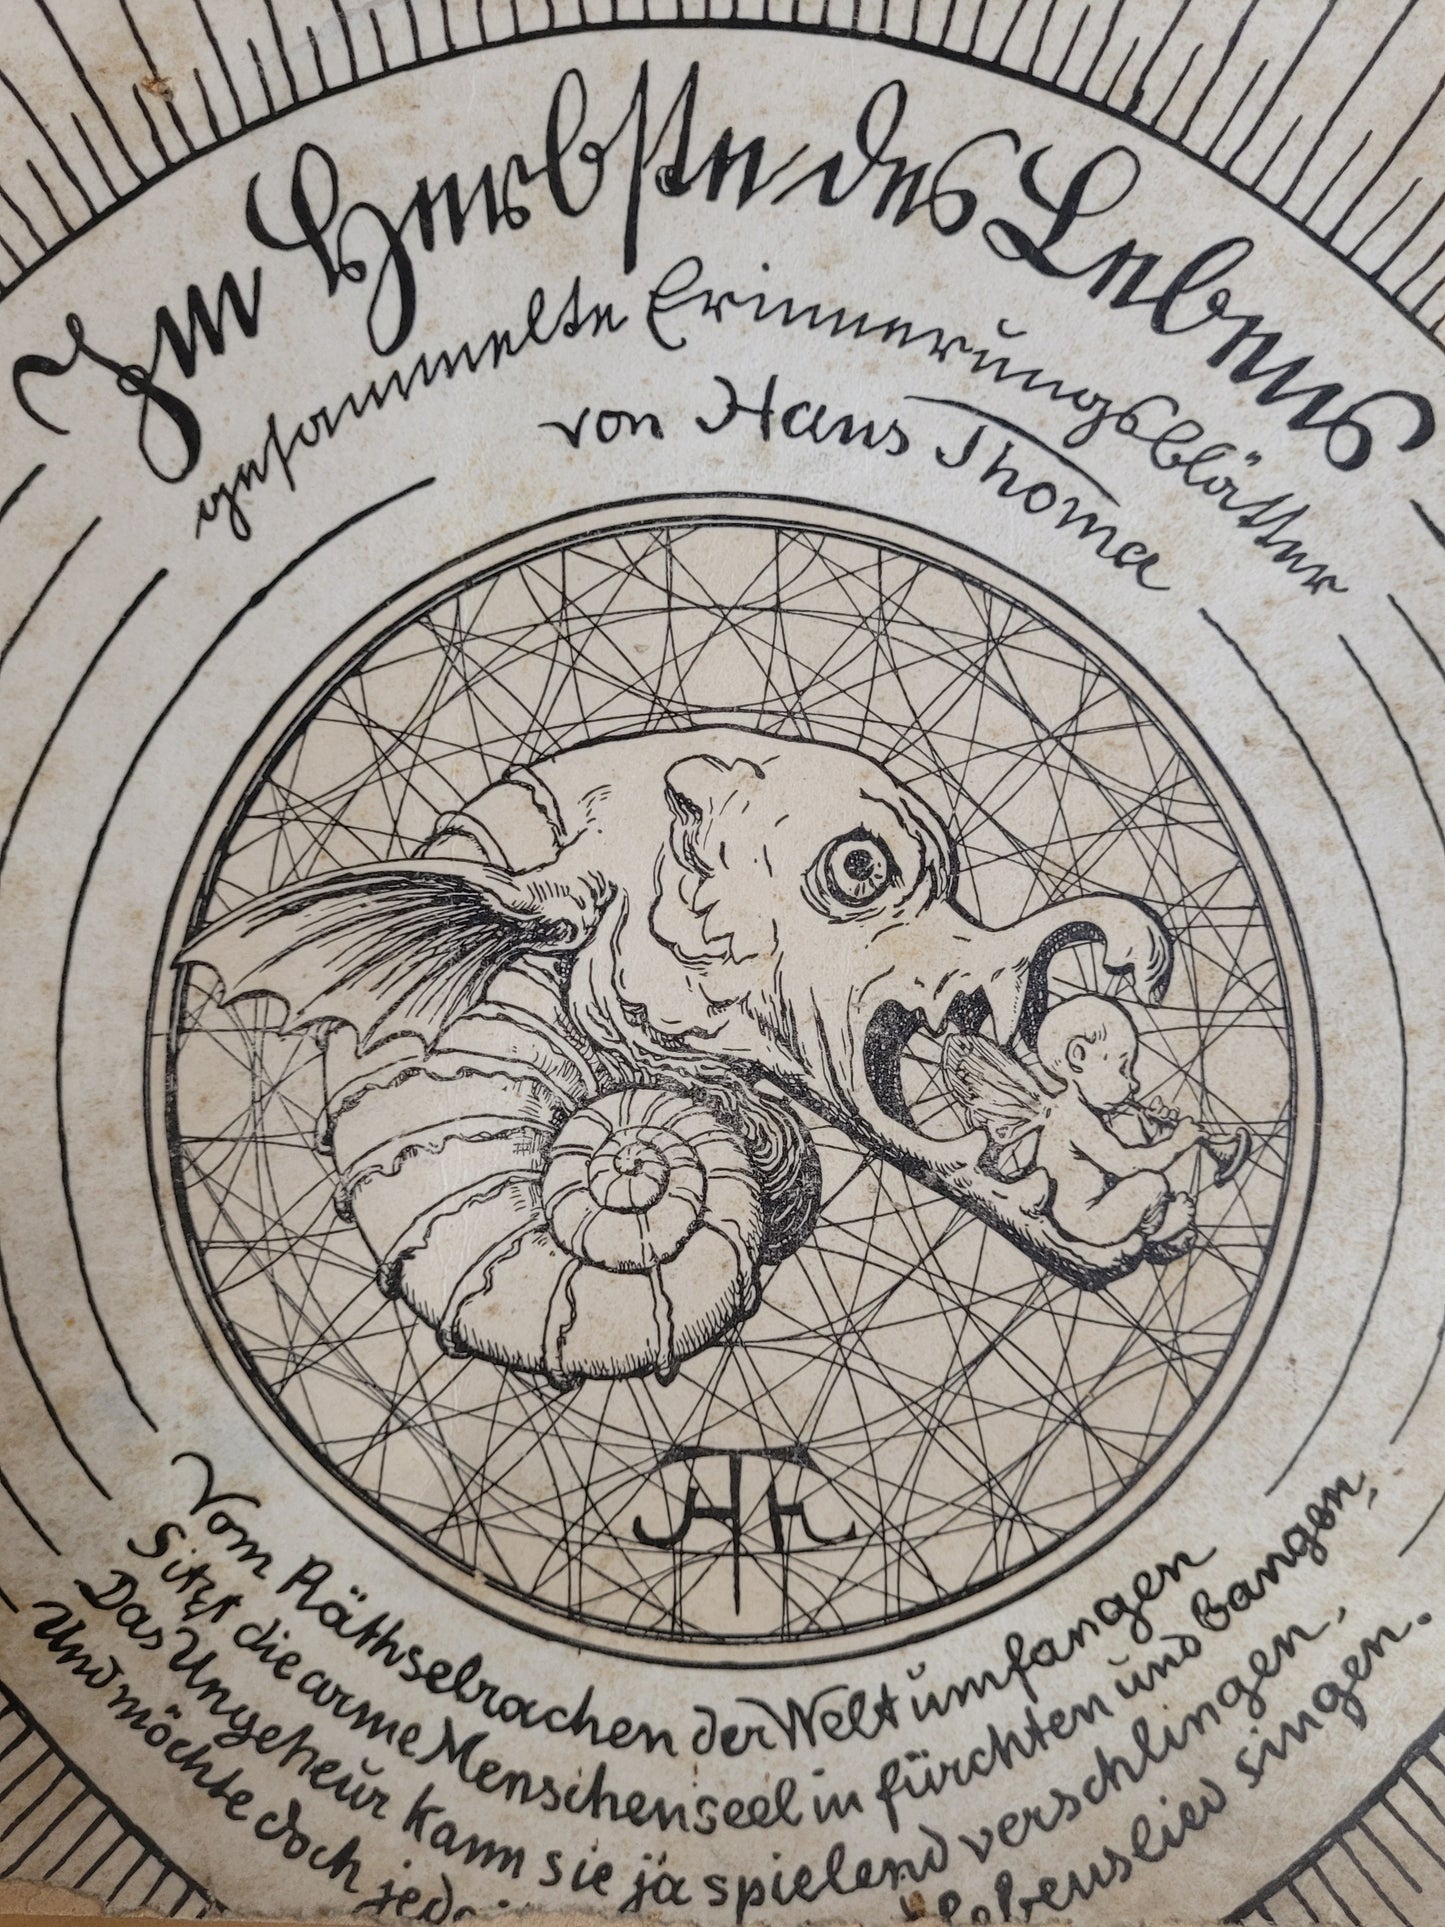 Im Herbste des Lebens
gesammelte Erinnerungsblätter
von Hans Thoma
HTh
Vom Räthselrachen der Welt umfangen
Sitzt die arme Menschenseel in fürchten und Bangen,
Das Ungeheur kann sie ja spielend verschlingen,
Und möchte doch Lebenslied singen.